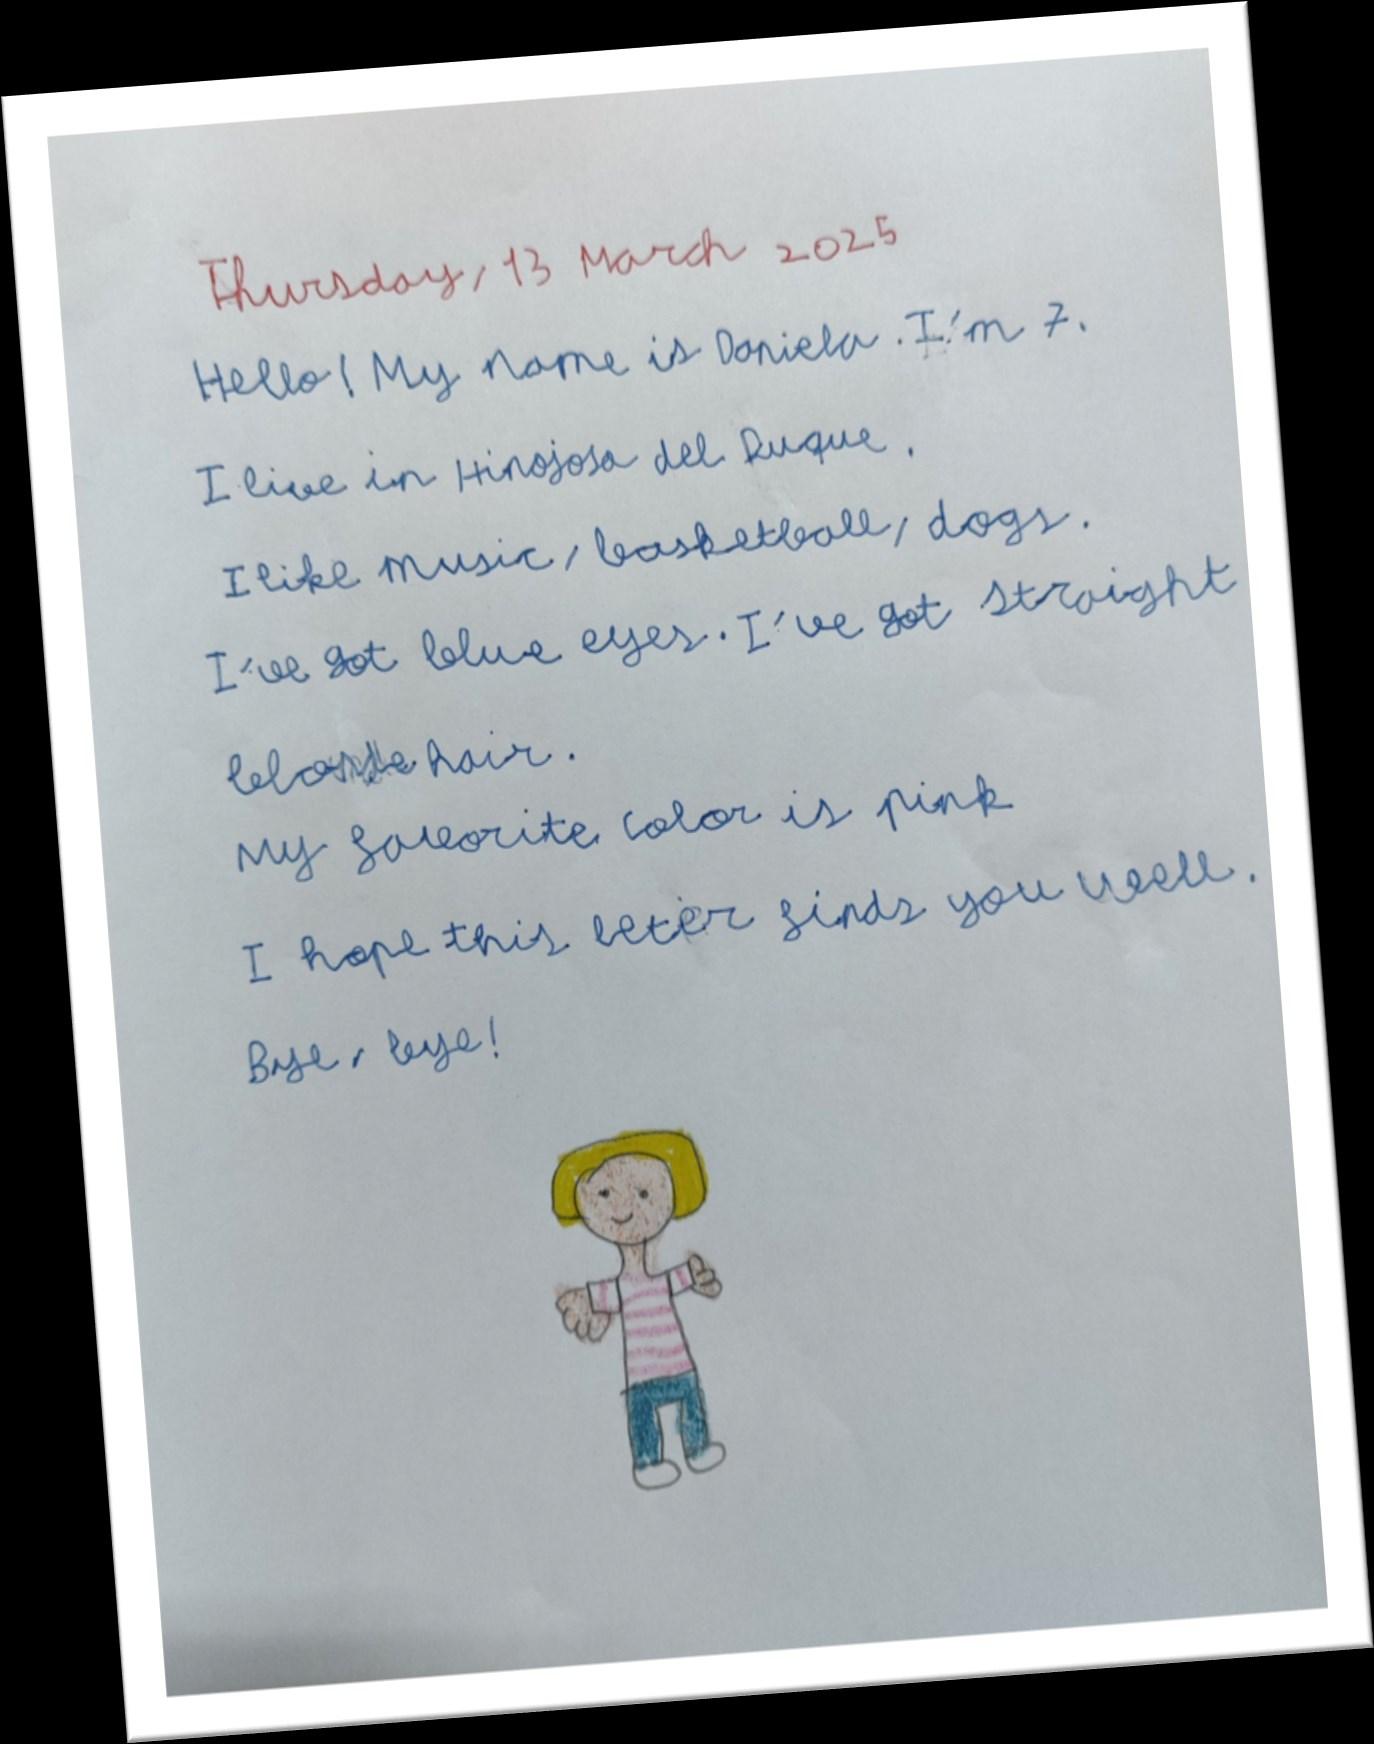 Thursday, 13 March 2025
Hello! My name is Daniela. I'm 7.
I live in Hinojosa del Duque.
I like music, basketball, dogs.
I've got blue eyes. I've got straight
blonde hair.
My favorite color is pink
I hope this leter finds you well.
Bye, bye!